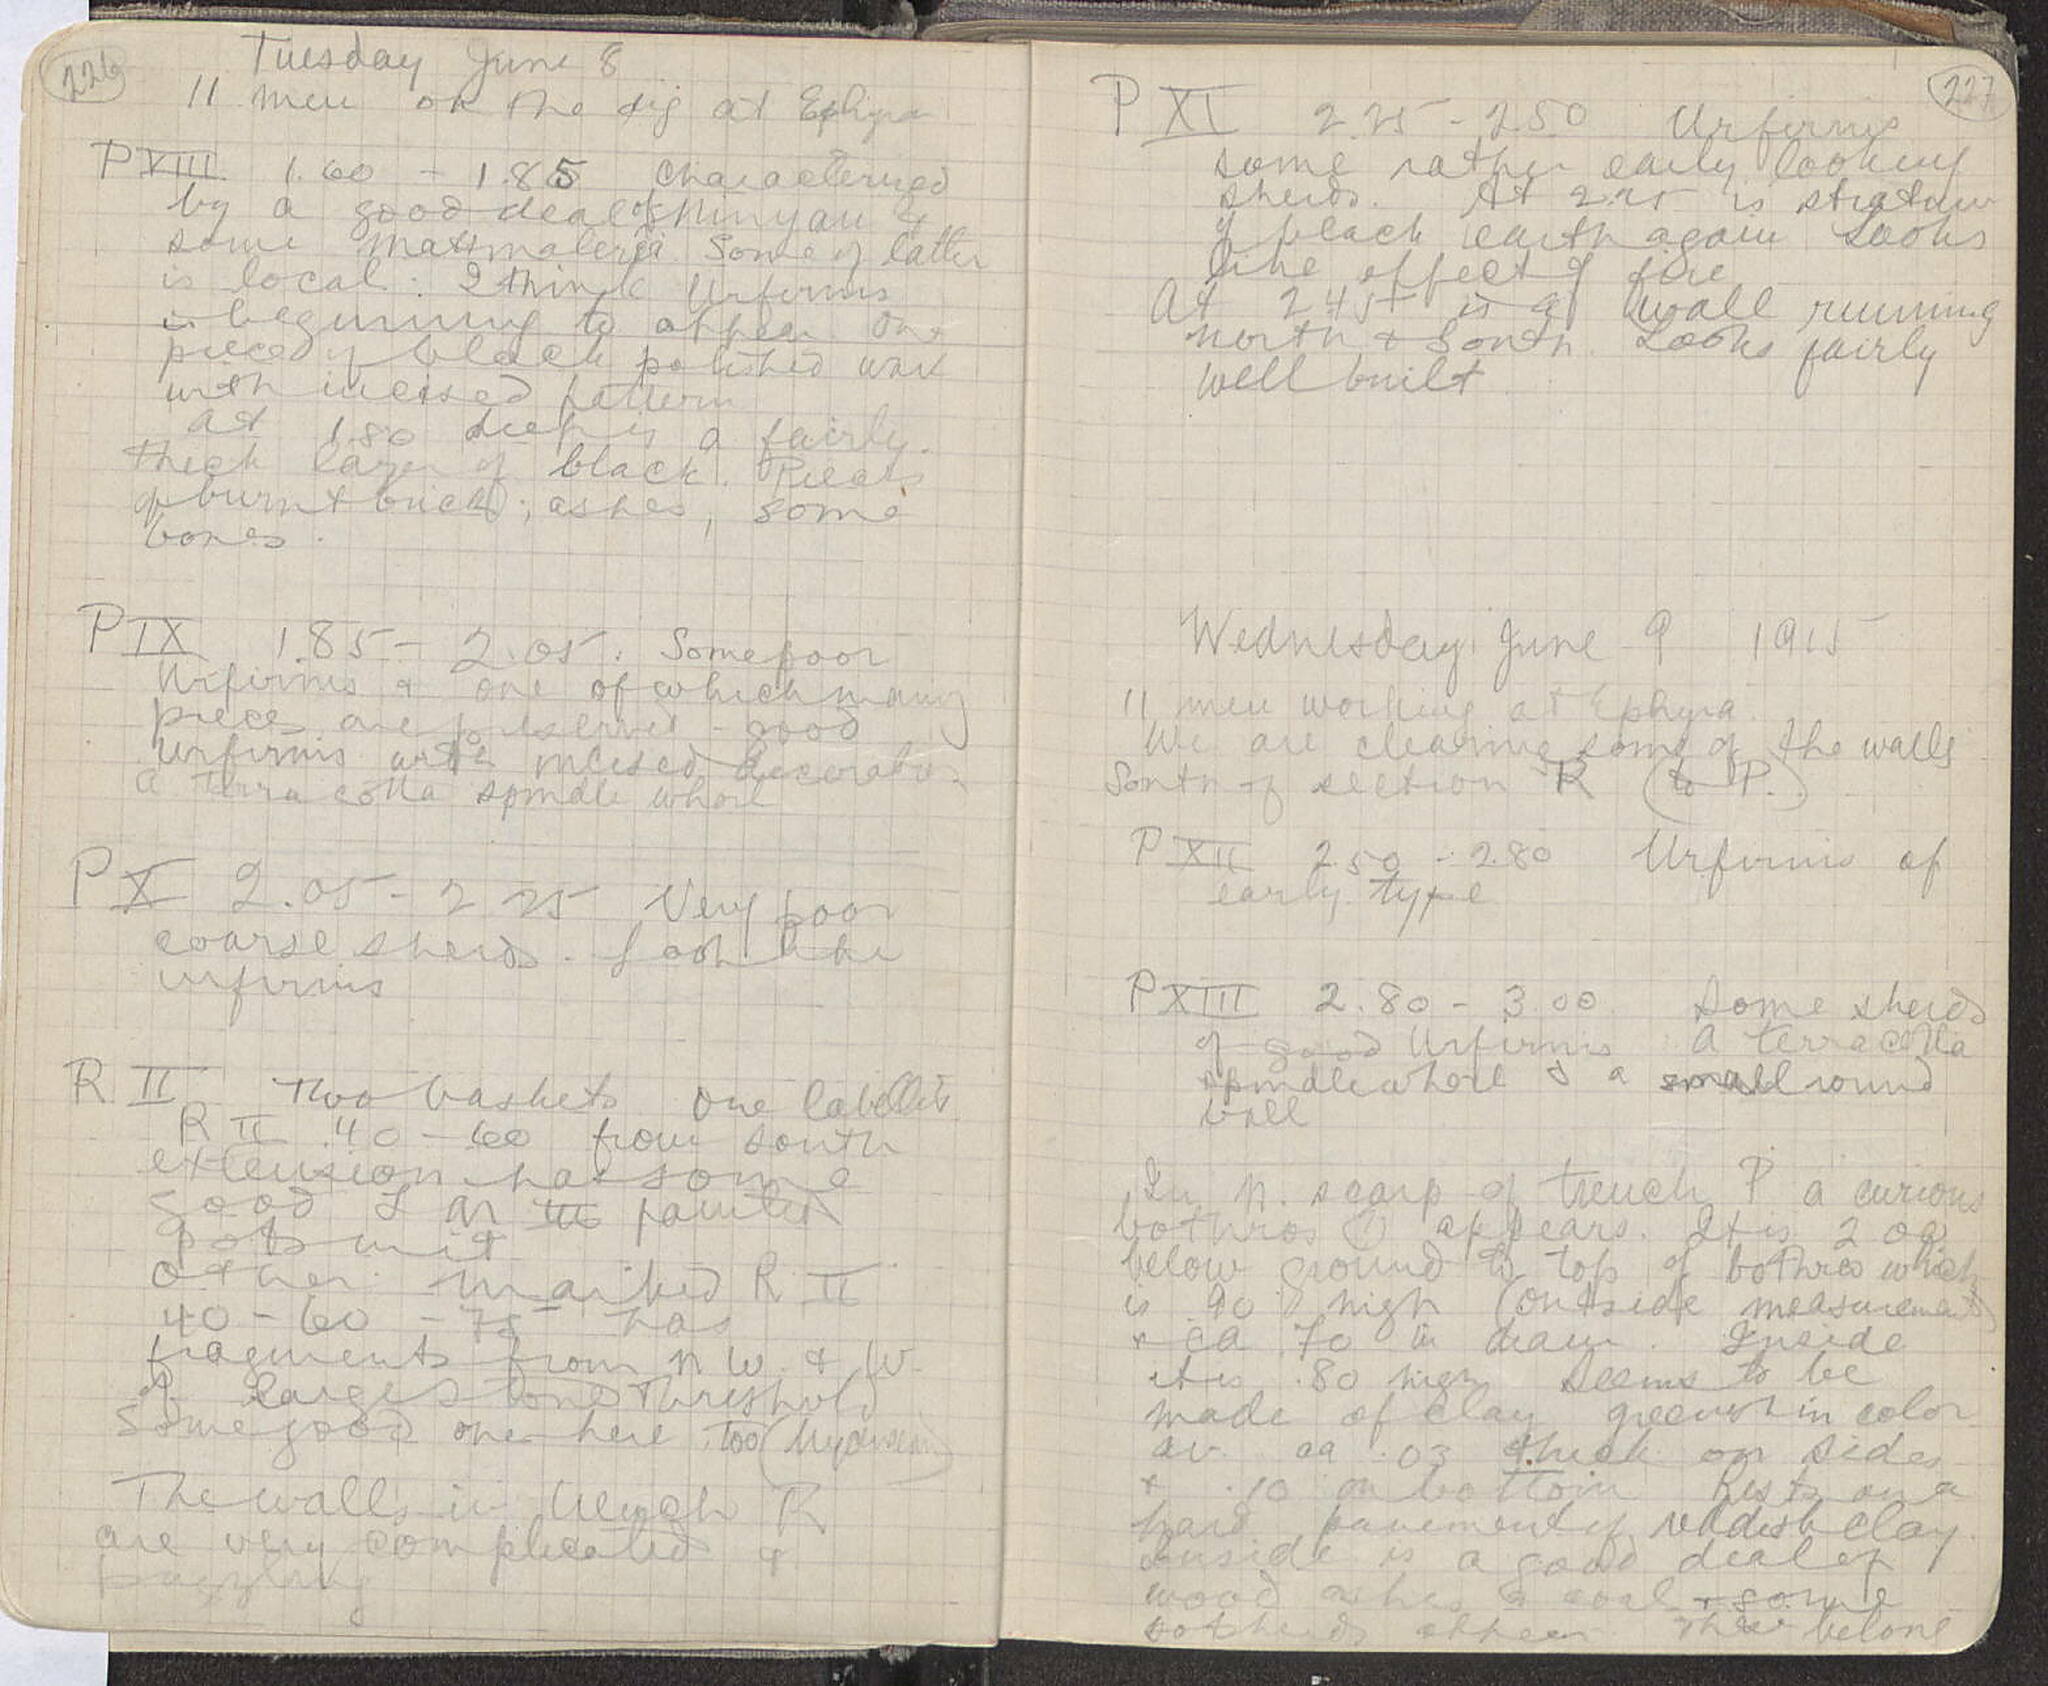 226
Tuesday June 8
11 men on the dig at Ephyra
P XIII 1.60 - 1.85 Characterized
by a good deal of Minyan &
some Mattmalerei. Some of latter
is local. I think Urfirnis
is beginning to appear. One
piece of black polished ware
with incised pattern
At 1.80 deep is a fairly
thick layer of black. Pieces
of burnt brick; ashes, some
bones.
P IX 1.85 - 2.05. Some poor
Urfirnis & one of which many
pieces are preserved - good
Urfirnis with incised decoration
A terra cotta spindle whorl
P X 2.05 - 2.25 Very poor
coarse sherds. Look like
urfirnis
R II Two baskets one labelled
R II .40 - 60 from south
extension has some
good L M III painted
pots in it
Other marked R II
40 - 60 - 75 has
fragments from N W. & W.
of large stone threshold
Some good one here too
The walls in trench R
are very complicated &
puzzling
227
P XI 2.25 - 2.50 Urfirnis
some rather early looking
sherds. At 2.25 is stratum
of black earth again Looks
like effect of fire
At 2.45 is a wall running
north & South. Looks fairly
well built
Wednesday June 9 1915
11 men working at Ephyra.
We are clearing some of the walls
South of section R (to P.)
P XII 2.50 - 2.80 Urfirnis of
early type
P XIII 2.80 - 3.00 Some sherds
of good Urfirnis A terracotta
spindle whorl & a small round
ball
In N. scarp of trench P a curious
bothros (?) appears. It is 2.00
below ground to top of bothros which
is .90 high (outside measurement)
& ca .70 in diam. Inside
it is .80 high Seems to be
made of clay greenish in color
av. ca .03 thick on sides
& .10 on bottom Rests on a
hard pavement of reddish clay.
Inside is a good deal of
wood ashes & coal & some
potsherds appear These belong